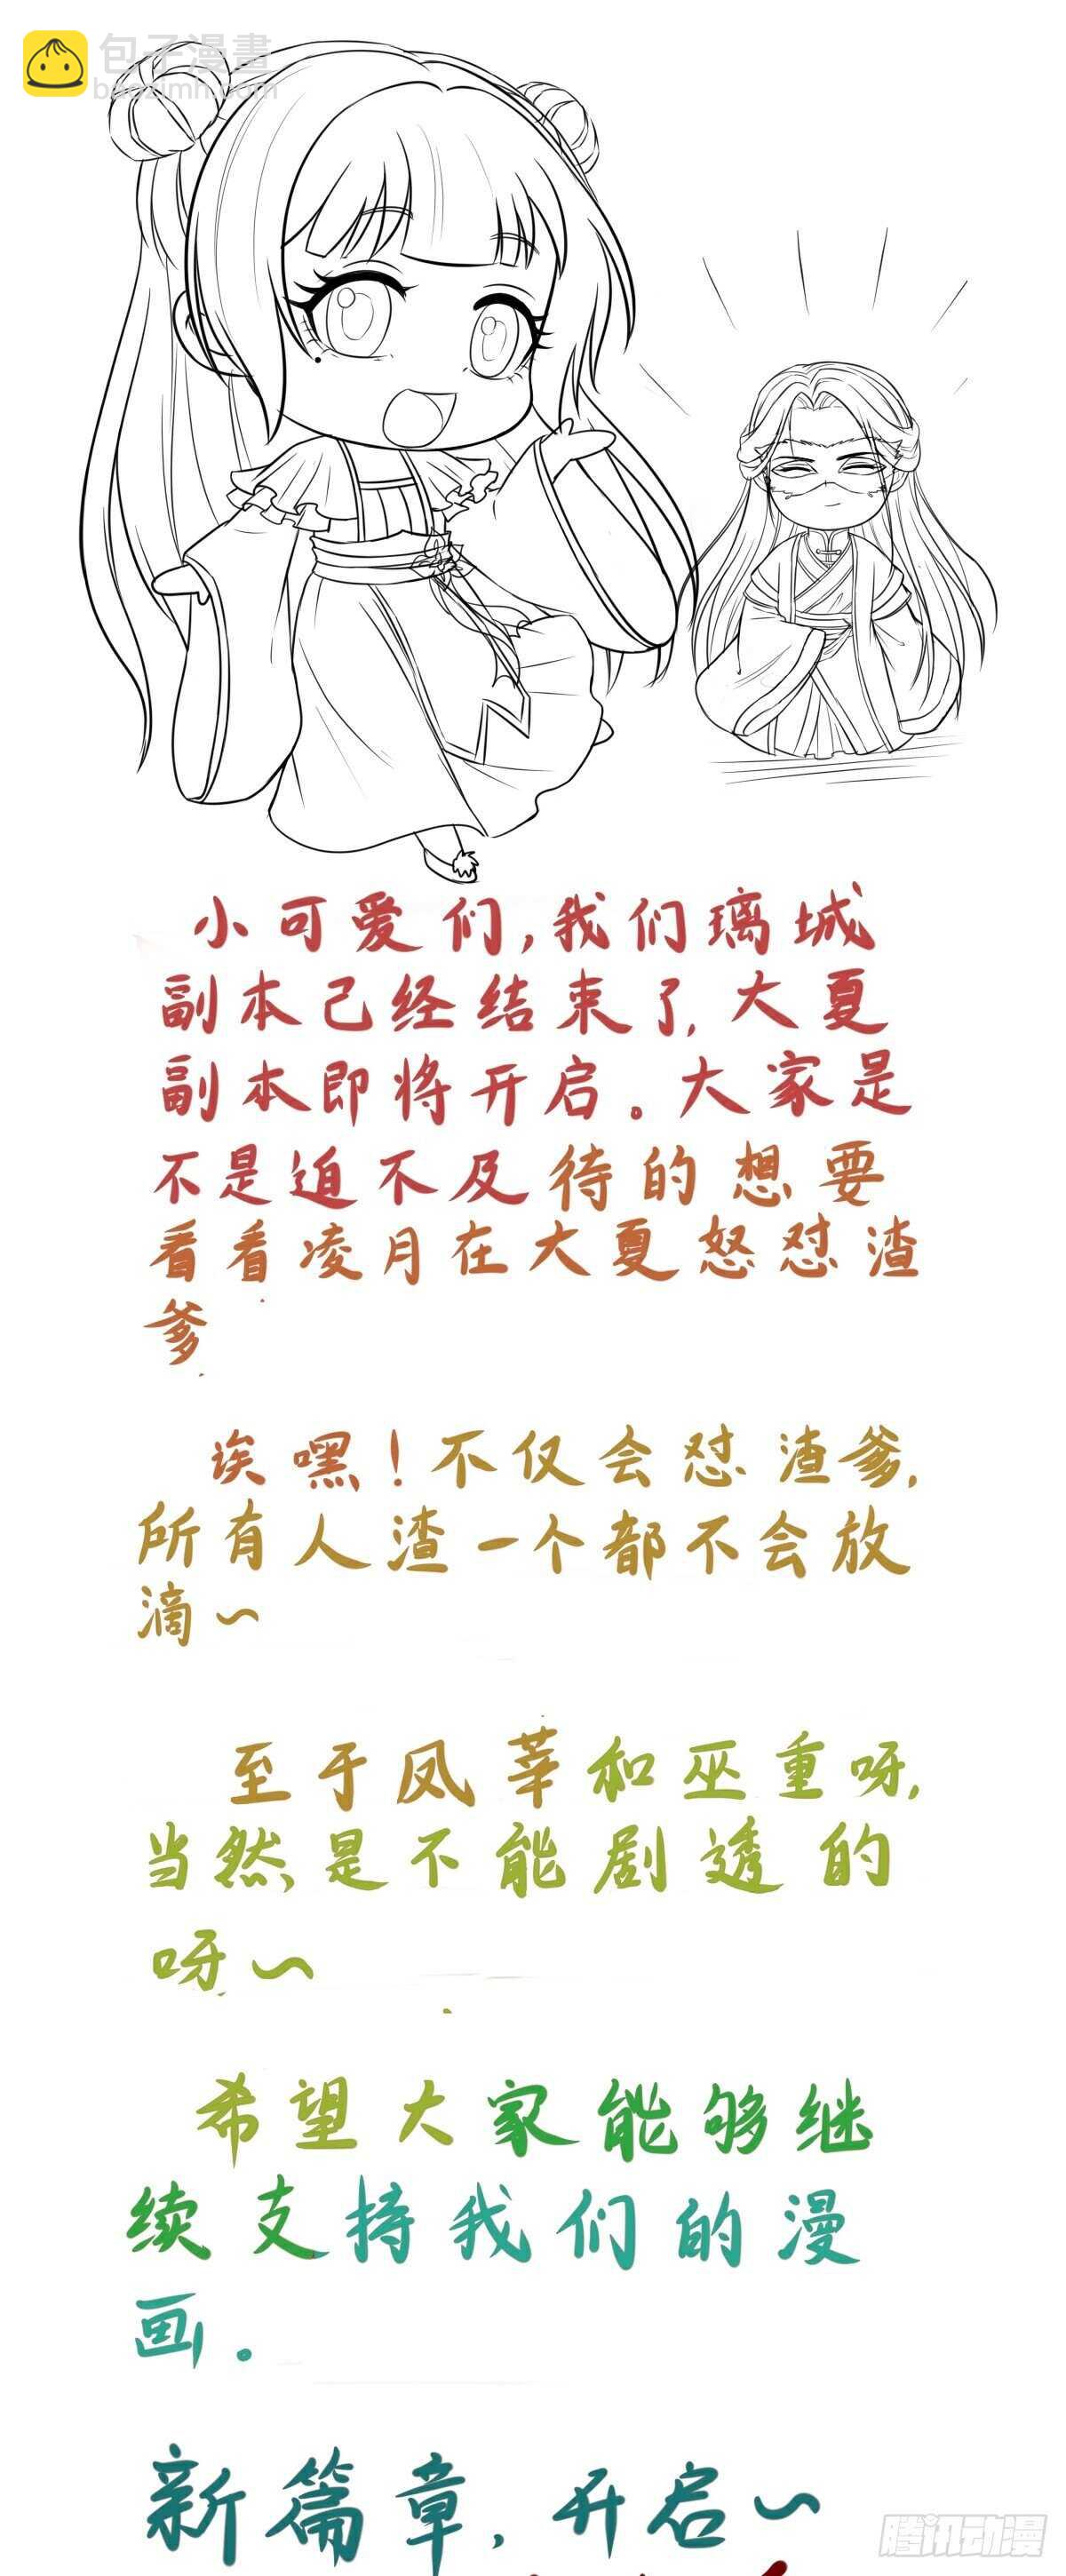 包子漫畫
baozimh.com
小可爱们,我们璃城
副本已经结束了,大夏
副本即将开启。大家是
不是迫不及待的想要
看看凌月在大夏怒怼渣
爹
诶嘿!不仅会怼渣爹,
所有人渣一个都不会放
滴~
至于凤莘和巫重呀,
当然是不能剧透的
呀~
希望大家能够继
续支持我们的漫
画.
新篇章,开启~
腾讯动漫